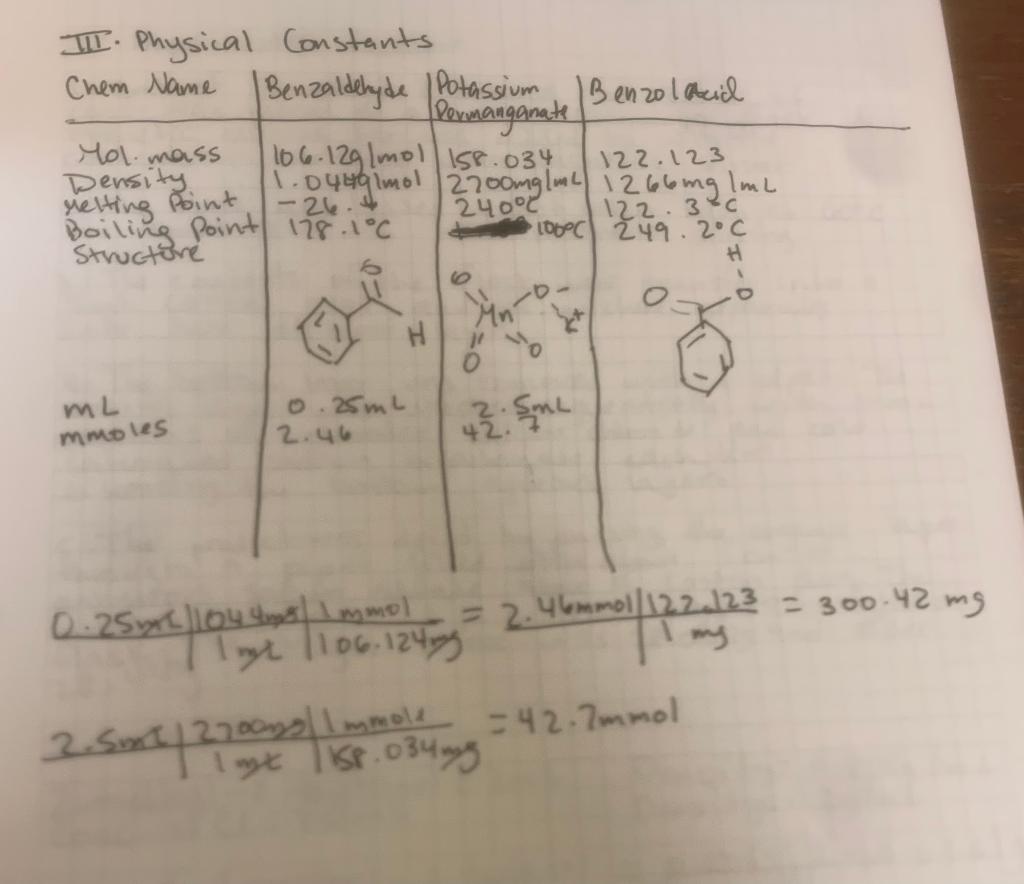 III. Physical Constants
Chem Name Benzaldehyde Potassium Permanganate Benzoic acid
Mol. mass 106.12g/mol 158.034 122.123
Density 1.044g/mol 2700mg/mL 1266mg/mL
Melting Point -26. 240°C 122.3°C
Boiling Point 178.1°C 100°C 249.2°C
Structure
O H
O Mn O - K+ O O
H O O
mL 0.25mL 2.5mL
mmoles 2.46 42.7
0.25mL 1044mg 1 mmol = 2.46mmol 122.123 = 300.42 mg
1 mL 106.124mg 1 mg
2.5mL 2700mg 1 mmole = 42.7mmol
1 mL 158.034mg